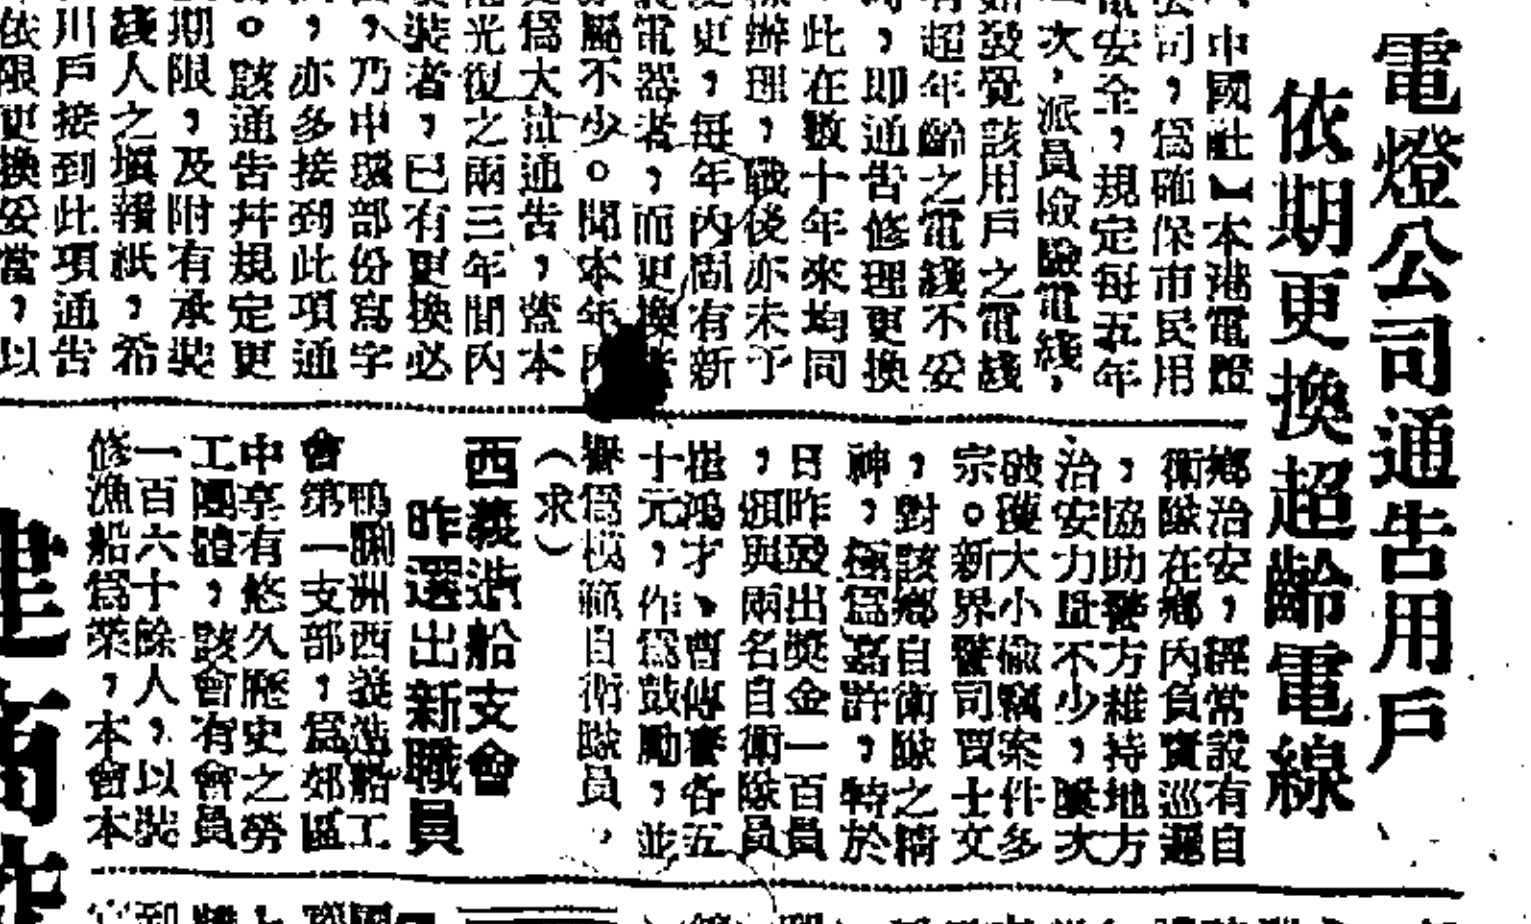 電燈公司通告用戶
依期更換超齡電線
中國社】本港電燈
公司，爲確保市民用
電安全，規定每五年
次，派員檢驗電綫，
發覺該用戶之電綫
有超年齡之電綫不妥
，即通告修理更換
此在數十年來均同
辦理，戰後亦未予
更，每年內尙有新
電器者，而更換者
屬不少。聞本年內
爲大批通告，蓋本
光復之兩三年間內
裝者，已有更換必
，乃中環部份寫字
，亦多接到此項通
。該通告幷規定更
期限，及附有承裝
綫人之塡報紙，希
用戶接到此項通告
依限更換妥當，以
鄉治安，經常設有自
衛隊在鄉內負責巡邏
，協助警方維持地方
治安力量不少，屢次
破獲大小偷竊案件多
宗。新界警司賈士文
，對該鄉自衛隊之精
神，極爲嘉許，特於
日昨發出獎金一百員
，頒與兩名自衛隊員
鴻才、曾傳 各五
十元，作爲鼓勵，並
譽爲模範自衛隊員，
（求）
西義造船支會
昨選出新職員
鴨脷洲西義造船工
會第一支部，爲郊區
中享有悠久歷史之勞
工團體，該會有會員
一百六十餘人，以裝
修漁船爲業，本會本